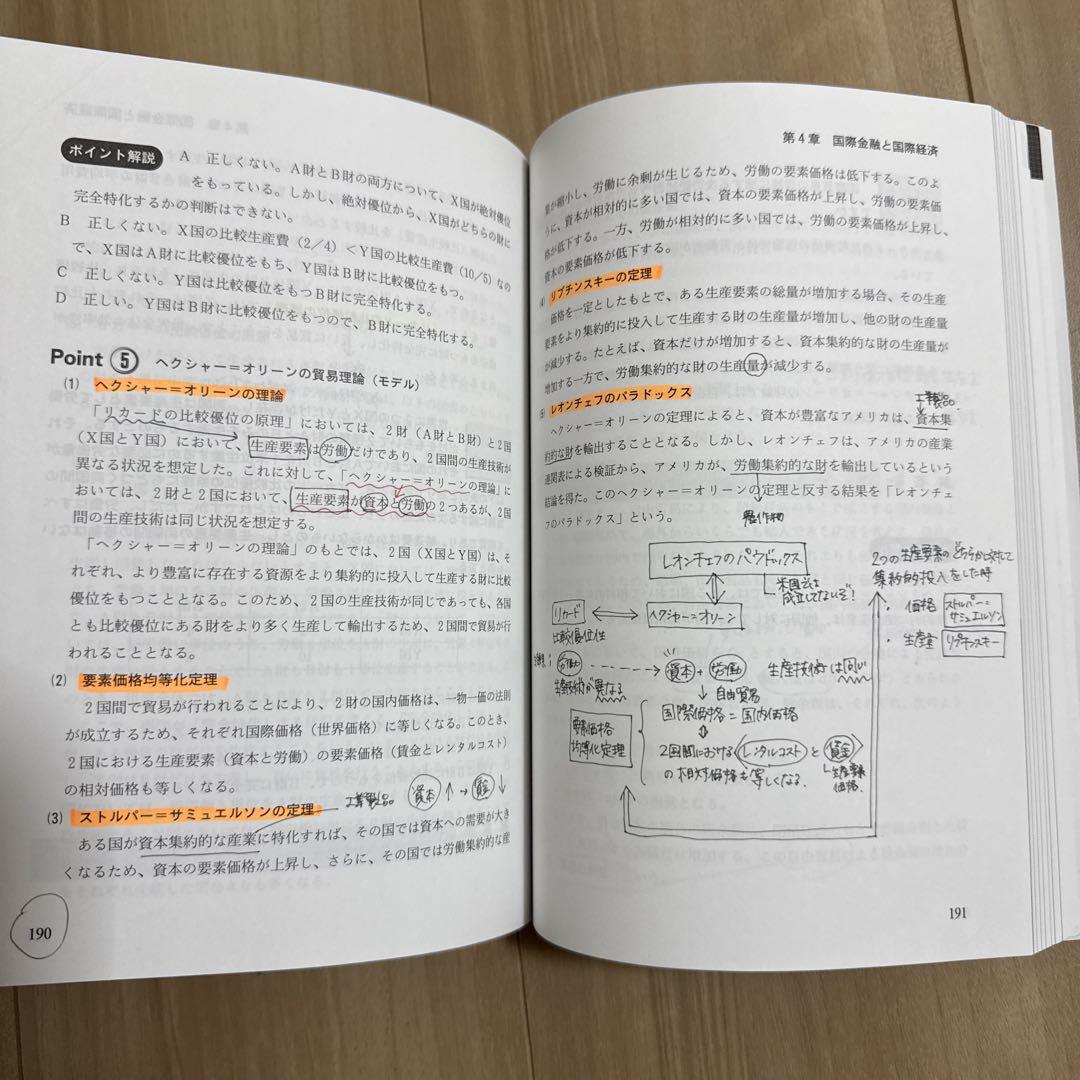 ポイント解説 A 正しくない。A財とB財の両方について、X国が絶対優位
をもっている。しかし、絶対優位から、X国がどちらの財に
完全特化するかの判断はできない。
B 正しくない。X国の比較生産費（2/4）＜Y国の比較生産費（10/5）なの
で、X国はA財に比較優位をもち、Y国はB財に比較優位をもつ。
C 正しくない。Y国は比較優位をもつB財に完全特化する。
D 正しい。Y国はB財に比較優位をもつので、B財に完全特化する。
Point 5 ヘクシャー＝オリーンの貿易理論（モデル）
(1) ヘクシャー＝オリーンの理論
「リカードの比較優位の原理」においては、2財（A財とB財）と2国
（X国とY国）において、生産要素は労働だけであり、2国間の生産技術が
異なる状況を想定した。これに対して、「ヘクシャー＝オリーンの理論」に
おいては、2財と2国において、生産要素が資本と労働の2つあるが、2国
間の生産技術は同じ状況を想定する。
「ヘクシャー＝オリーンの理論」のもとでは、2国（X国とY国）は、そ
れぞれ、より豊富に存在する資源をより集約的に投入して生産する財に比較
優位をもつこととなる。このため、2国の生産技術が同じであっても、各国
とも比較優位にある財をより多く生産して輸出するため、2国間で貿易が行
われることとなる。
(2) 要素価格均等化定理
2国間で貿易が行われることにより、2財の国内価格は、一物一価の法則
が成立するため、それぞれ国際価格（世界価格）に等しくなる。このとき、
2国における生産要素（資本と労働）の要素価格（賃金とレンタルコスト）
の相対価格も等しくなる。
工業製品 資本↑→賃金↓
(3) ストルパー＝サミュエルソンの定理
ある国が資本集約的な産業に特化すれば、その国では資本への需要が大き
くなるため、資本の要素価格が上昇し、さらに、その国では労働集約的な産
190
第4章 国際金融と国際経済
業が縮小し、労働に余剰が生じるため、労働の要素価格は低下する。このよ
うに、資本が相対的に多い国では、資本の要素価格が上昇し、労働の要素価
格が低下する。一方、労働が相対的に多い国では、労働の要素価格が上昇し、
資本の要素価格が低下する。
(4) リプチンスキーの定理
価格を一定としたもとで、ある生産要素の総量が増加する場合、その生産
要素をより集約的に投入して生産する財の生産量が増加し、他の財の生産量
が減少する。たとえば、資本だけが増加すると、資本集約的な財の生産量が
増加する一方で、労働集約的な財の生産量が減少する。
(5) レオンチェフのパラドックス
工業製品
ヘクシャー＝オリーンの定理によると、資本が豊富なアメリカは、資本集
約的な財を輸出することとなる。しかし、レオンチェフは、アメリカの産業
連関表による検証から、アメリカが、労働集約的な財を輸出しているという
結論を得た。このヘクシャー＝オリーンの定理と反する結果を「レオンチェ
フのパラドックス」という。
農作物
レオンチェフのパラドックス
米国では
成立してないぞ！
リカード
ヘクシャー＝オリーン
比較優位性
労働
資本＋労働 生産技術は同じ
生産技術が異なる
↓自由貿易
要素価格
均等化定理
国際価格＝国内価格
2国間における レンタルコスト と 賃金
の相対価格も等しくなる。
生産要素
価格
2つの生産要素のどちらかに対して
集約的投入をした時
・価格 ストルパー＝
サミュエルソン
・生産量 リプチンスキー
191